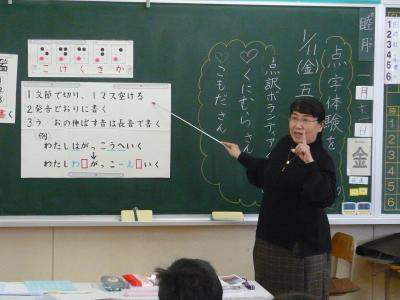 こけくきか
1 文節で切り、1マス空ける
2 発音どおりに書く
3 う、おの伸ばす音は長音で書く
(例)
わたしはがっこうへいく
↓
わたしわ□がっこーえ□いく
点字体験を
1/11(金)五
点訳ボランティア
♡くにむらさん
♡こもださん
睦月
一月十一日
金